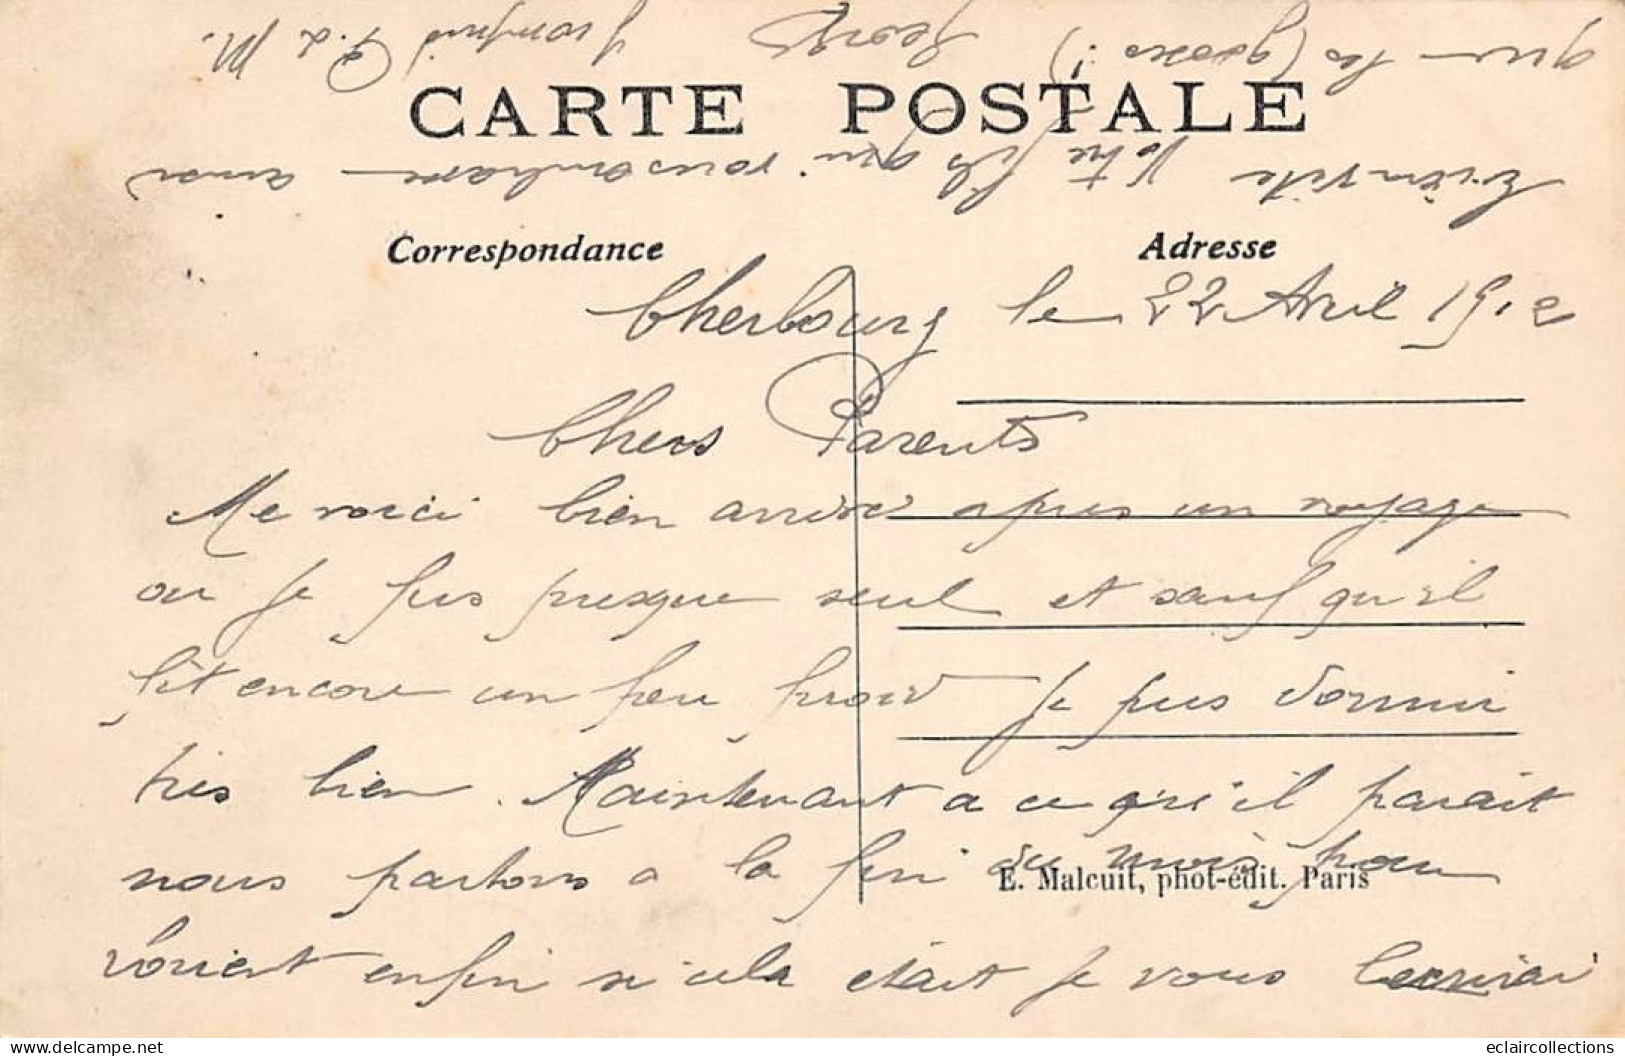 CARTE POSTALE
Correspondance
Adresse
Cherbourg le 22 Avril 1912
Chers Parents
Me voici bien arrivé apres un voyage
ou je fus presque seul et sauf qu'il
fit encore un peu froid je pus dormir
très bien. Maintenant a ce qu'il parait
nous partons a la fin du mois pour
Lorient enfin si cela était je vous l'ecrirai
E. Malcuit, phot-édit. Paris
très vite Votre fils qui vous embrasse ainsi
que les gosses
eclaircollections
https://www.delcampe.net